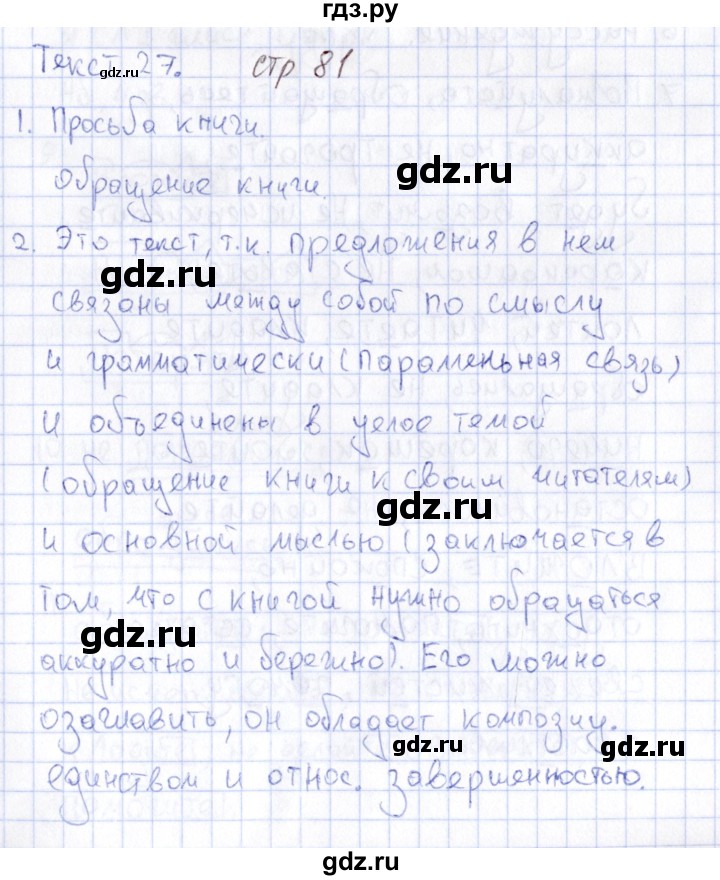 гдз.ру
Текст 27. стр 81
gdz.ru
1. Просьба книги.
gdz.ru
Обращение книги.
2. Это текст, т.к. предложения в нем
gdz.ru
связаны между собой по смыслу
и грамматически (параллельная связь)
и объединены в целое темой
(обращение книги к своим читателям)
gdz.ru
и основной мыслью (заключается в
том, что с книгой нужно обращаться
gdz.ru
аккуратно и бережно). Его можно
озаглавить, он обладает композиц.
gdz.ru gdz.ru
единством и относ. завершенностью.
gdz.ru